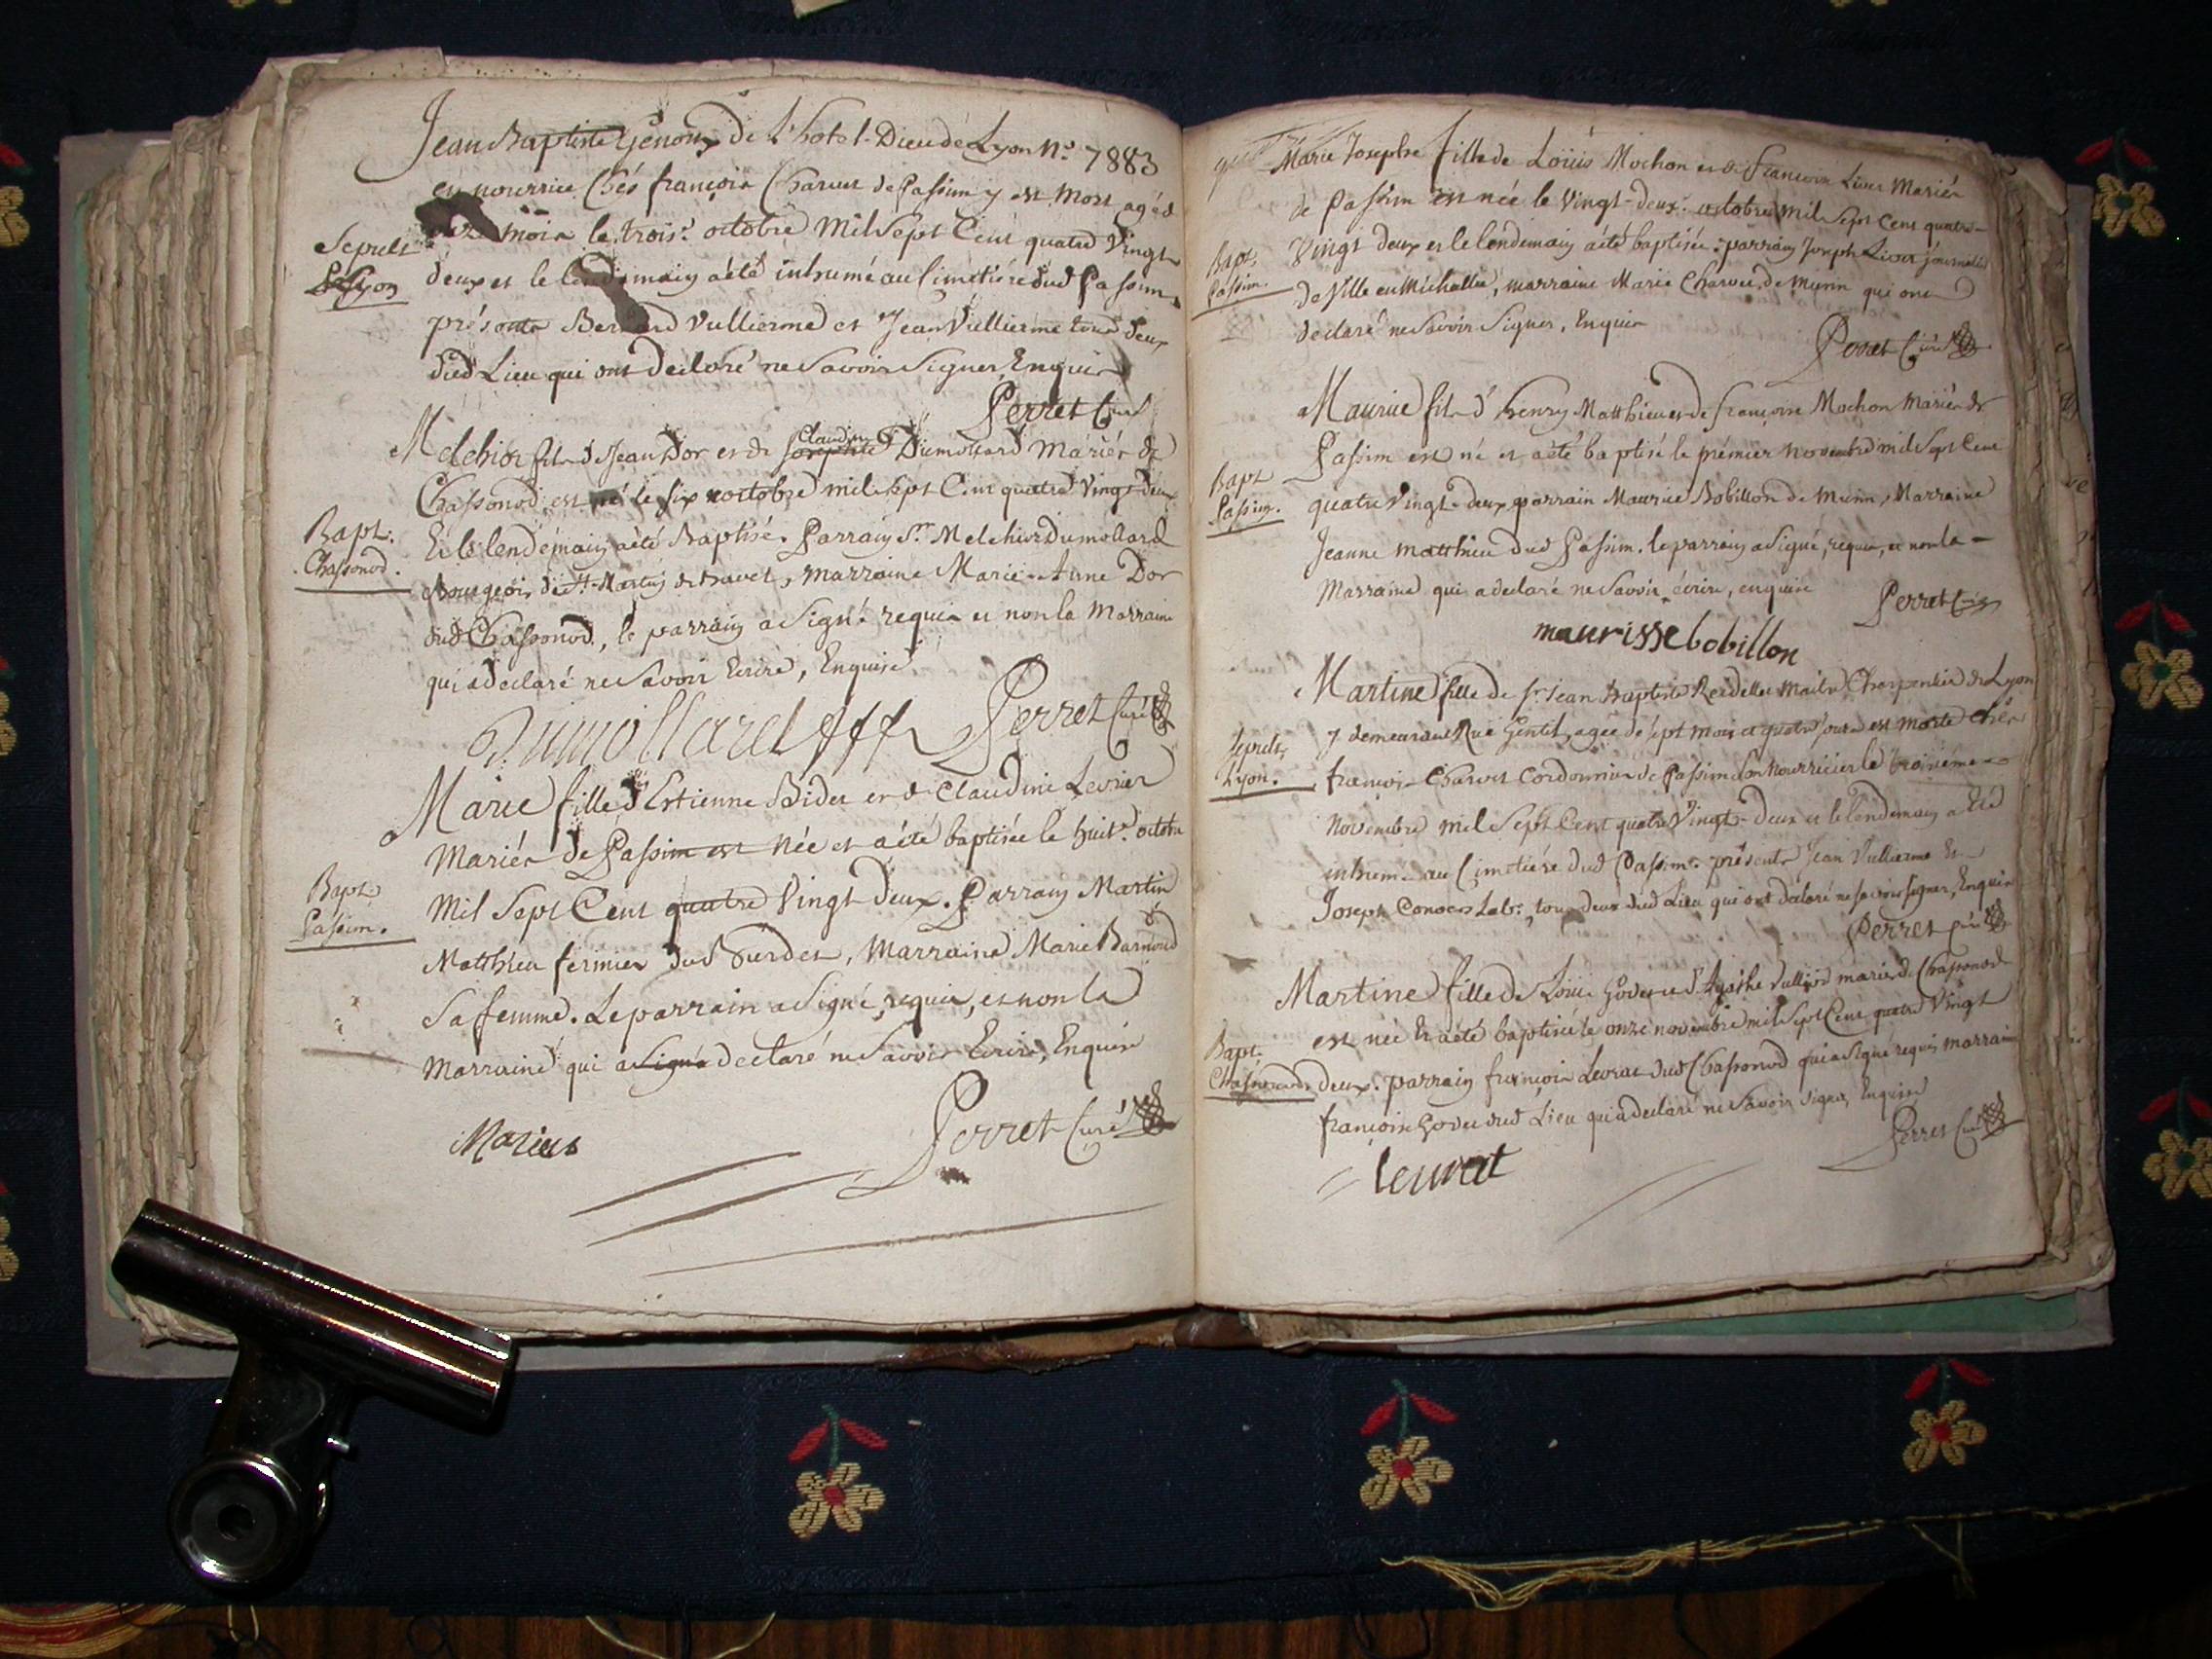 Jean Baptiste Genoux de L'hotel-Dieu de Lyon N.o 7883
en nourrice Chés françois Charvet de Passim y est Mort agé d
mois le trois.e octobre Mil Sept Cent quatre Vingt
Sepult.
Lyon
deux et le lendemain a été inhumé au Cimetiére dud Passim,
présents Bernard Vullierme et Jean Vullierme tous deux
dud Lieu qui ont declaré ne Savoir Signer, Enquis
Perret Curé
Claudine
Melchior fils de Jean Dor et de Josephte Dumollard Mariés de
Chassonod est né le six octobre mil sept Cent quatre Vingt deux
Bapt.
Chassonod.
Et le lendemain a été Baptisé. Parrain S.r Melchior Dumollard
Bourgeois de St. Martin de bavel, marraine Marie-Anne Dor
dud Chassonod, le parrain a Signé requis et non la Marraine
qui a declaré ne Savoir Ecrire, Enquise
Dumollard Perret Curé
Marie fille d'Estienne Bidet et de Claudine Levrier
Mariés de Passim est Née et a été baptisée le huit.e octobre
Bapt.
Passim.
Mil Sept Cent quatre Vingt deux. Parrain Martin
Matthieu fermier dud Surdes, Marraine Marie Barnoud
Sa femme. Le parrain a Signé, requis, et non la
Marraine qui a Signé declaré ne Savoir Ecrire, Enquise
Matieu
Perret Curé
Marie Josephe fille de Loüis Mochon et de Francoise Livet Mariés
de Passim est née le Vingt-deux.e octobre mil Sept Cent quatre-
Bapt.
Passim.
Vingt deux et le lendemain a été baptisée. parrain Joseph Livet journalier
de Ville en Michaille, marraine Marie Charvet de Munin qui ont
declaré ne Savoir Signer, Enquis
Perret Curé
Maurice fils d'henry Matthieu et de françoise Mochon Mariés de
Passim est né et a été baptisé le prémier Novembre mil Sept Cent
Bapt
Passim.
quatre Vingt-deux parrain Maurice Bobillon de Munin, Marraine
Jeanne Matthieu dud Passim. le parrain a Signé, requis, et non la
Marraine qui a declaré ne Savoir écrire, enquise
Perret Curé
maurisse bobillon
Martine fille de S.r Jean Baptiste Maitre Charpentier de Lyon
y demeurant Rue Gentil, agée de sept mois et quatre jours est morte chés
Sepult.
Lyon.
françois Charvet Cordonnier de Passim Son Nourricier le troisième
Novembre mil Sept Cent quatre Vingt-deux et le lendemain a été
inhumé au Cimetiére dud Passim. présents Jean Vullierme Et
Joseph Lab.r tous deux dud Lieu qui ont déclaré ne Savoir signer, Enquis
Perret Curé
Martine fille de Loüis Godet et d'Agathe Vulliod mariés de Chassonod
est née Et a été baptisée le onze novembre mil Sept Cent quatre Vingt
Bapt.
Chassonod.
deux. parrain françois Levrat dud Chassonod qui a Signé requis marraine
françoise Godet dud Lieu qui a declaré ne Savoir Signer, Enquise
Perret Curé
leuvrat